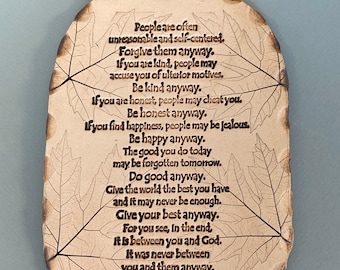 People are often
unreasonable and self-centered.
Forgive them anyway.
If you are kind, people may
accuse you of ulterior motives.
Be kind anyway.
If you are honest, people may cheat you.
Be honest anyway.
If you find happiness, people may be jealous.
Be happy anyway.
The good you do today
may be forgotten tomorrow.
Do good anyway.
Give the world the best you have
and it may never be enough.
Give your best anyway.
For you see, in the end,
it is between you and God.
It was never between
you and them anyway.